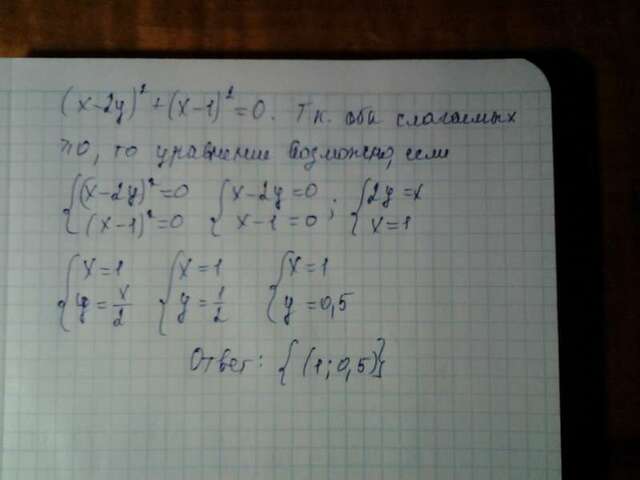 (x-2y)² + (x-1)² = 0. Т.к. оба слагаемых
≥0, то уравнение возможно, если
{(x-2y)²=0 {x-2y=0 ; {2y=x
(x-1)²=0 x-1=0 x=1
{x=1 {x=1 {x=1
y=x/2 y=1/2 y=0,5
Ответ: {(1;0,5)}